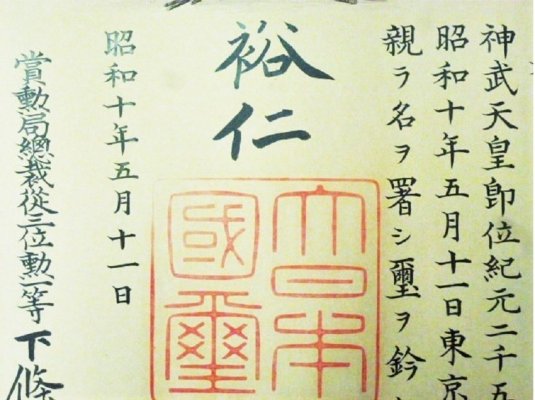 神武天皇卽位紀元二千五
昭和十年五月十一日東京
親ラ名ヲ署シ璽ヲ鈐
裕仁
大日本
國璽
昭和十年五月十一日
賞勳局總裁從三位勳一等下條